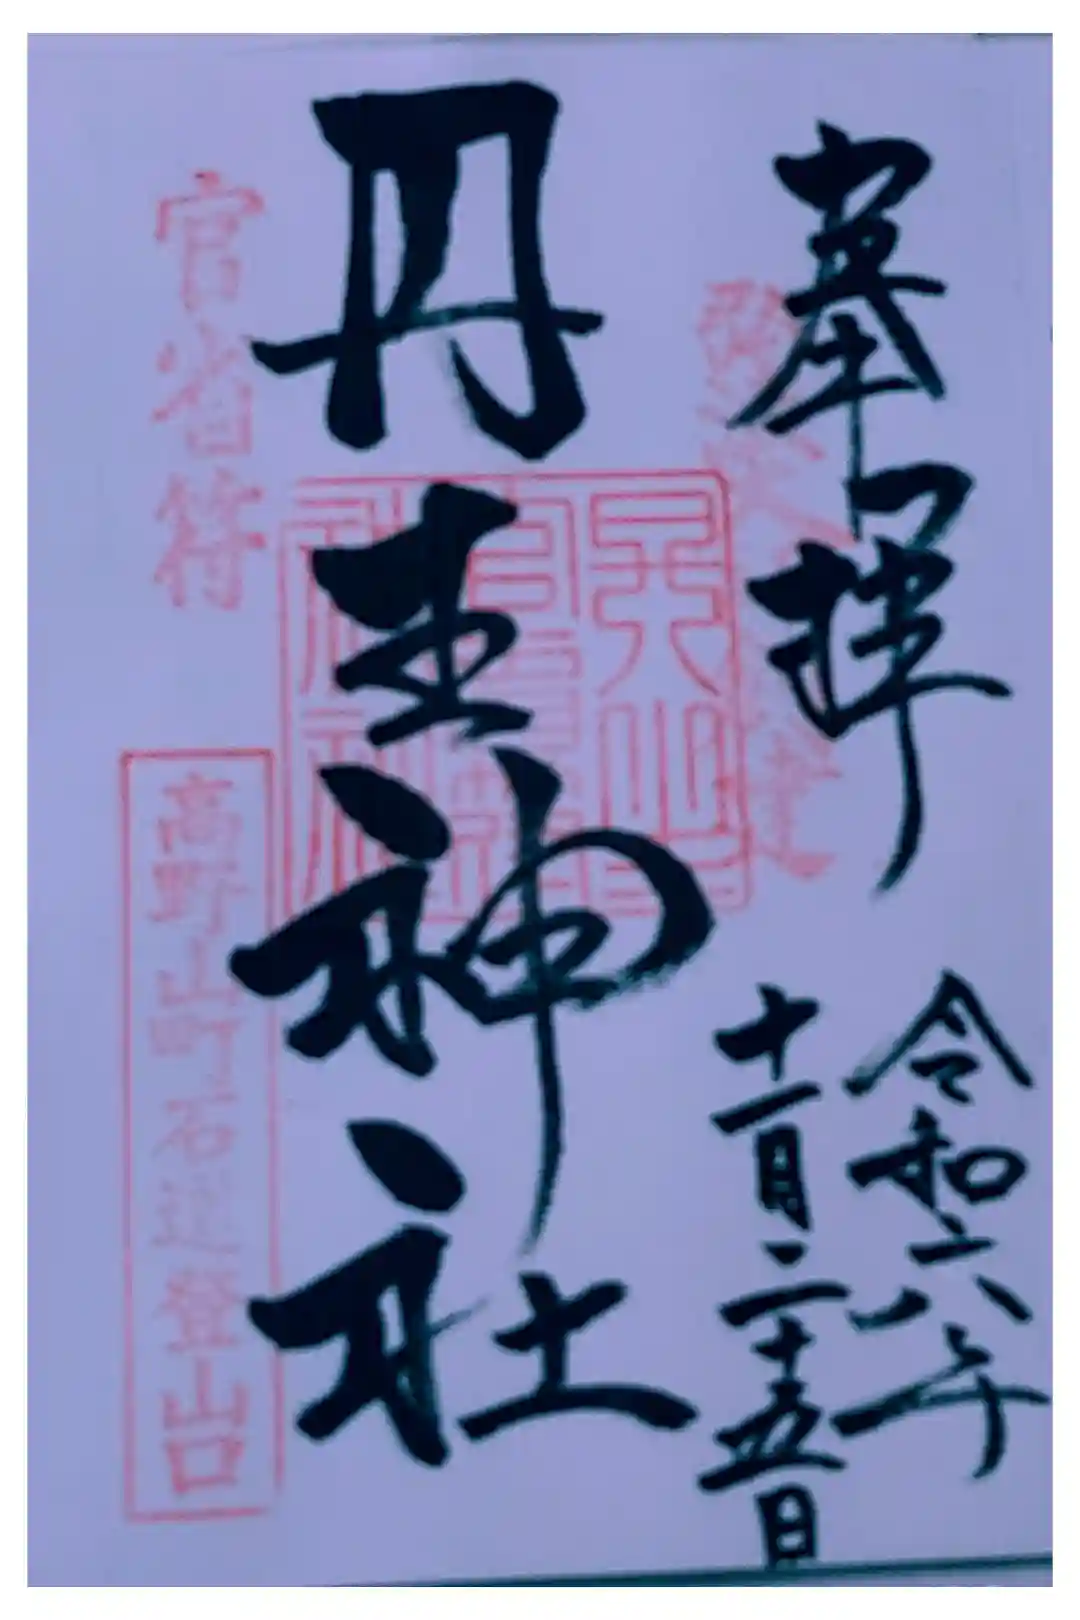 奉拝
令和六年
十一月二十五日
丹生神社
官省符
高野山町石道登山口